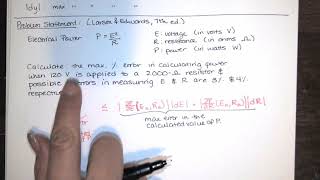 |dy| max " " "
Problem Statement: (Larson & Edwards, 7th ed.)
Electrical Power P = E²/R E: voltage (in volts V)
R: resistance (in ohms Ω)
P: power (in watts W)
Calculate the max. % error in calculating power
when 120 V is applied to a 2000-Ω resistor &
possible errors in measuring E & R are 3% & 4%,
respectively.
≤ |∂P/∂E (E₀,R₀)||dE| + |∂P/∂R (E₀,R₀)||dR|
max error in the
calculated value of P.